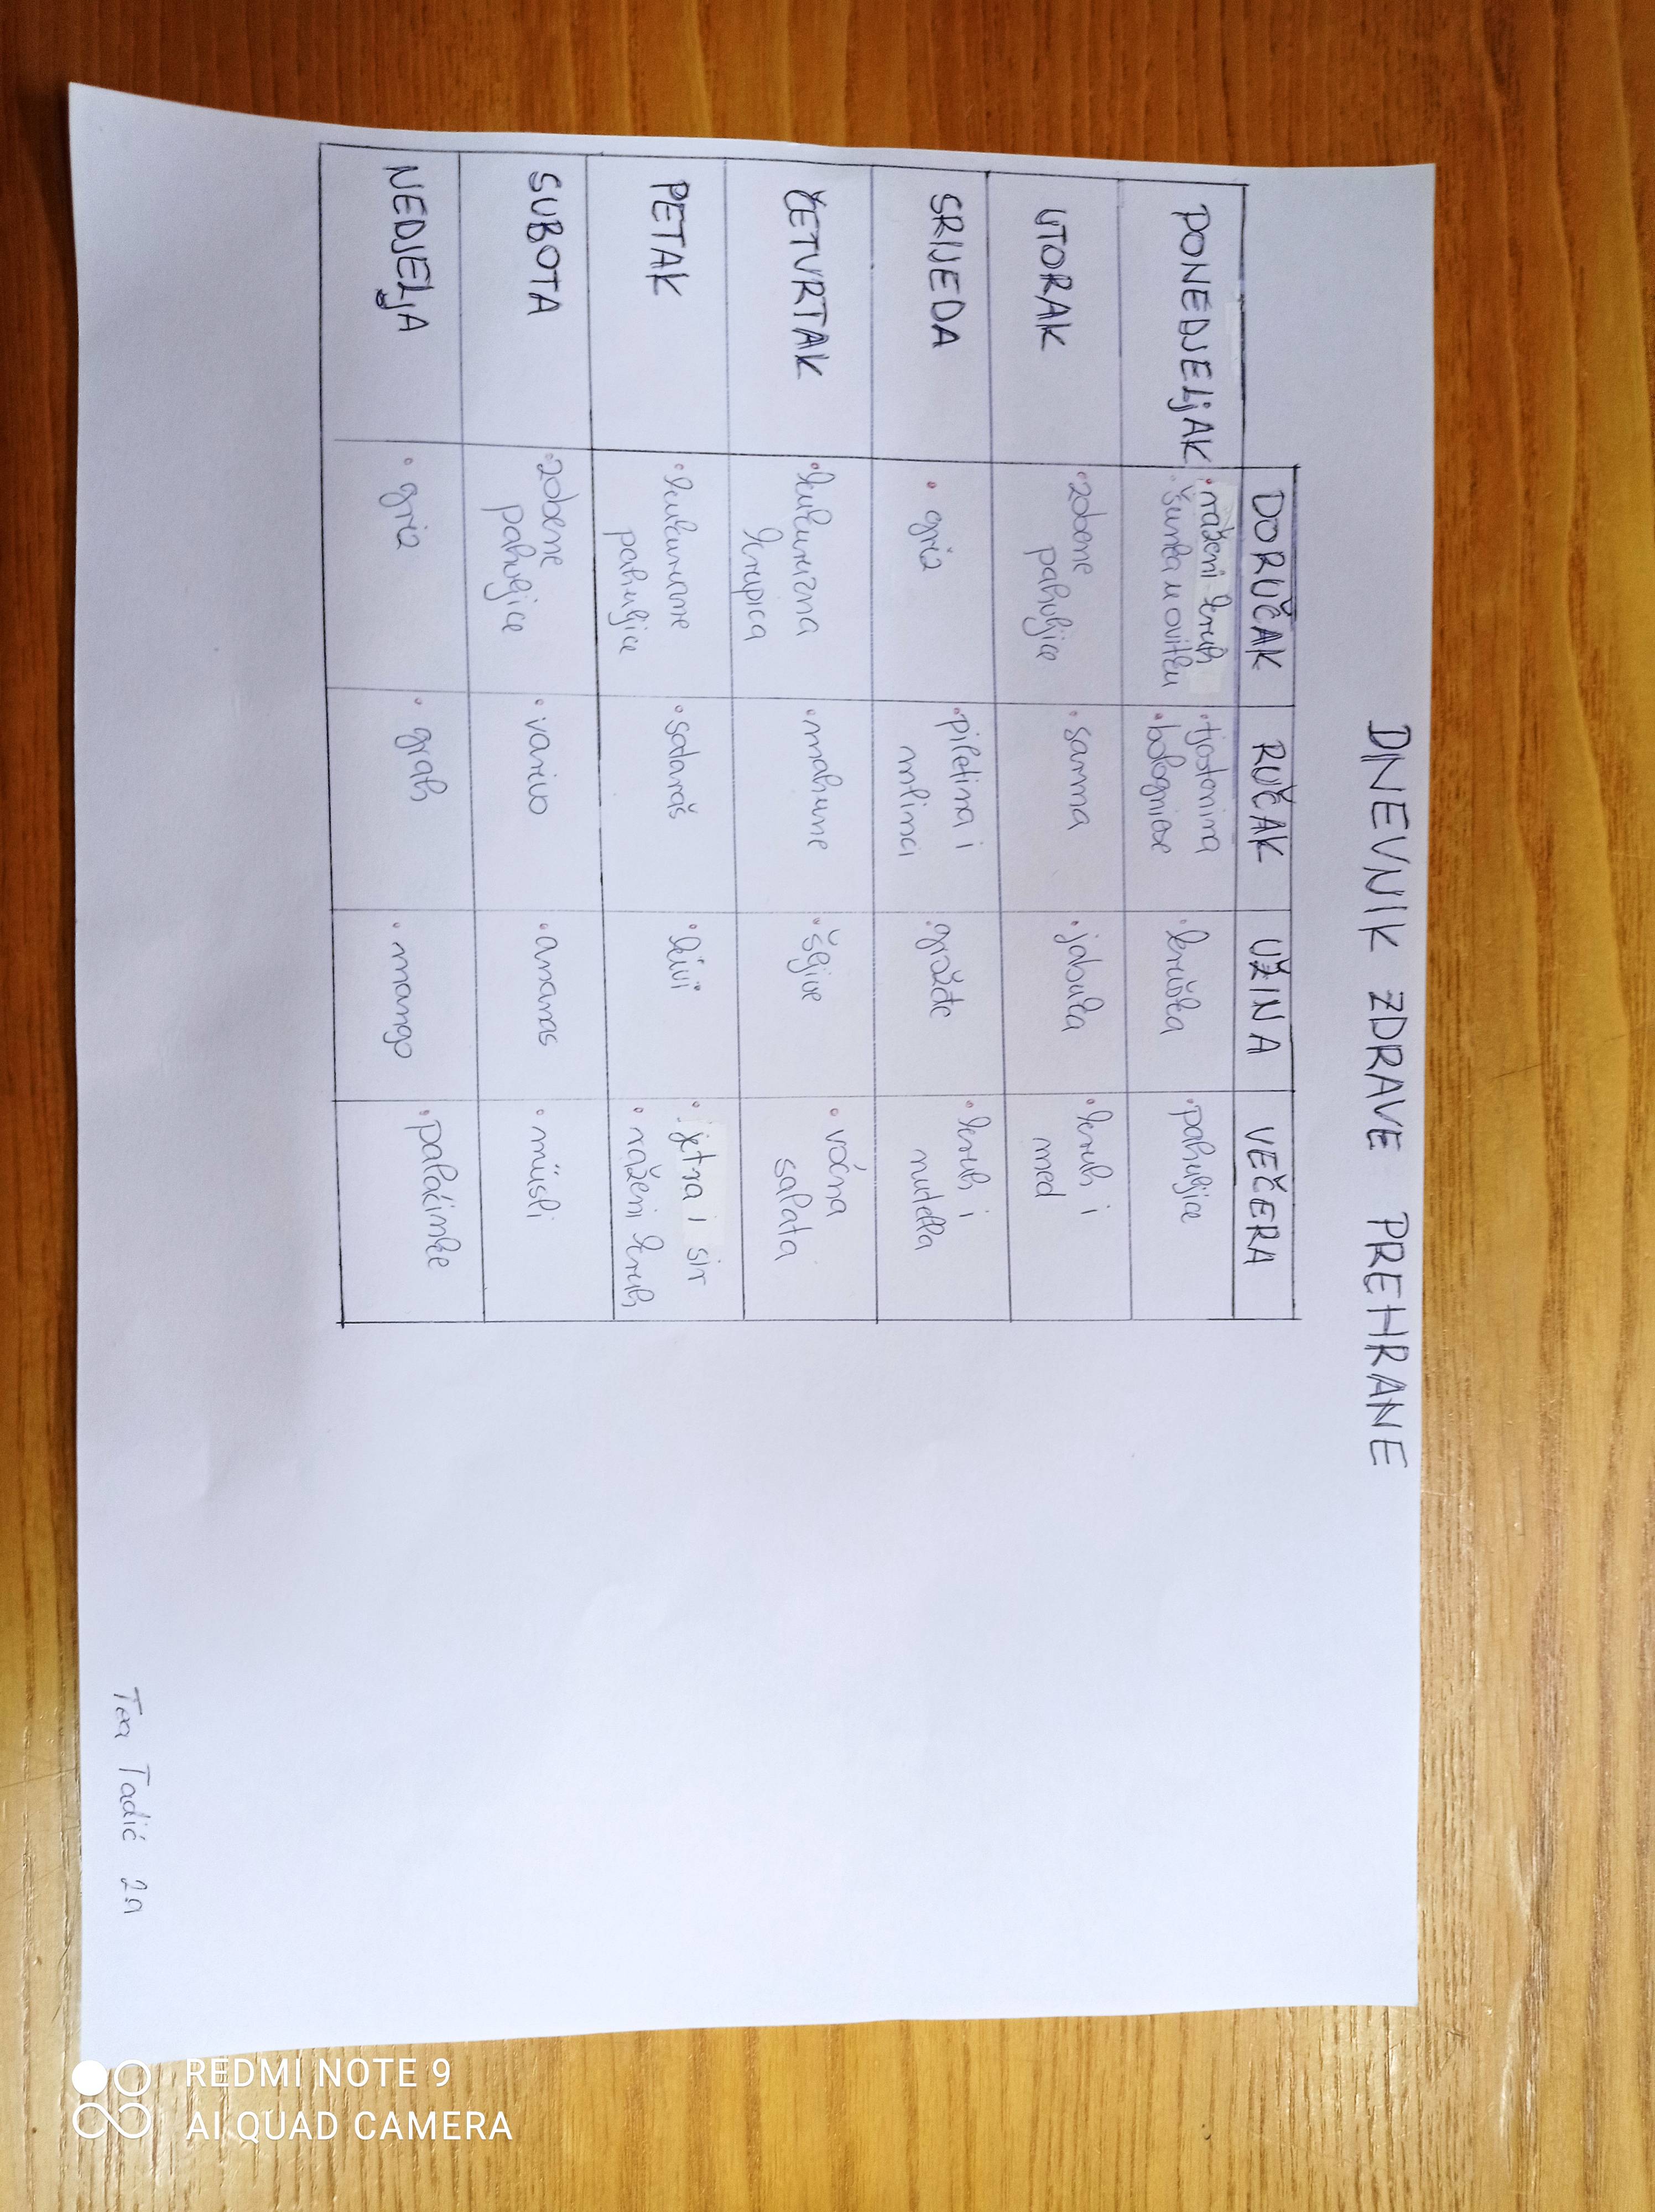 DNEVNIK ZDRAVE PREHRANE
DORUČAK RUČAK UŽINA VEČERA
PONEDJELjAK
• raženi kruh
• šunka u ovitku
• tjestenina
• bolognese
• kruška
• pahuljice
UTORAK
• zobene
pahuljice
• sarma
• jabuka
• kruh i
med
SRIJEDA
• griz
• piletina i
mlinci
• grožđe
• kruh i
nutella
ČETVRTAK
• kukuruzna
krupica
• mahune
• šljive
• voćna
salata
PETAK
• kukuruzne
pahuljice
• sataraš
• kivi
• jetra i sir
• raženi kruh
SUBOTA
• zobene
pahuljice
• varivo
• ananas
• müsli
NEDJELjA
• griz
• grah
• mango
• palačinke
Tea Tadić 2a
REDMI NOTE 9
AI QUAD CAMERA